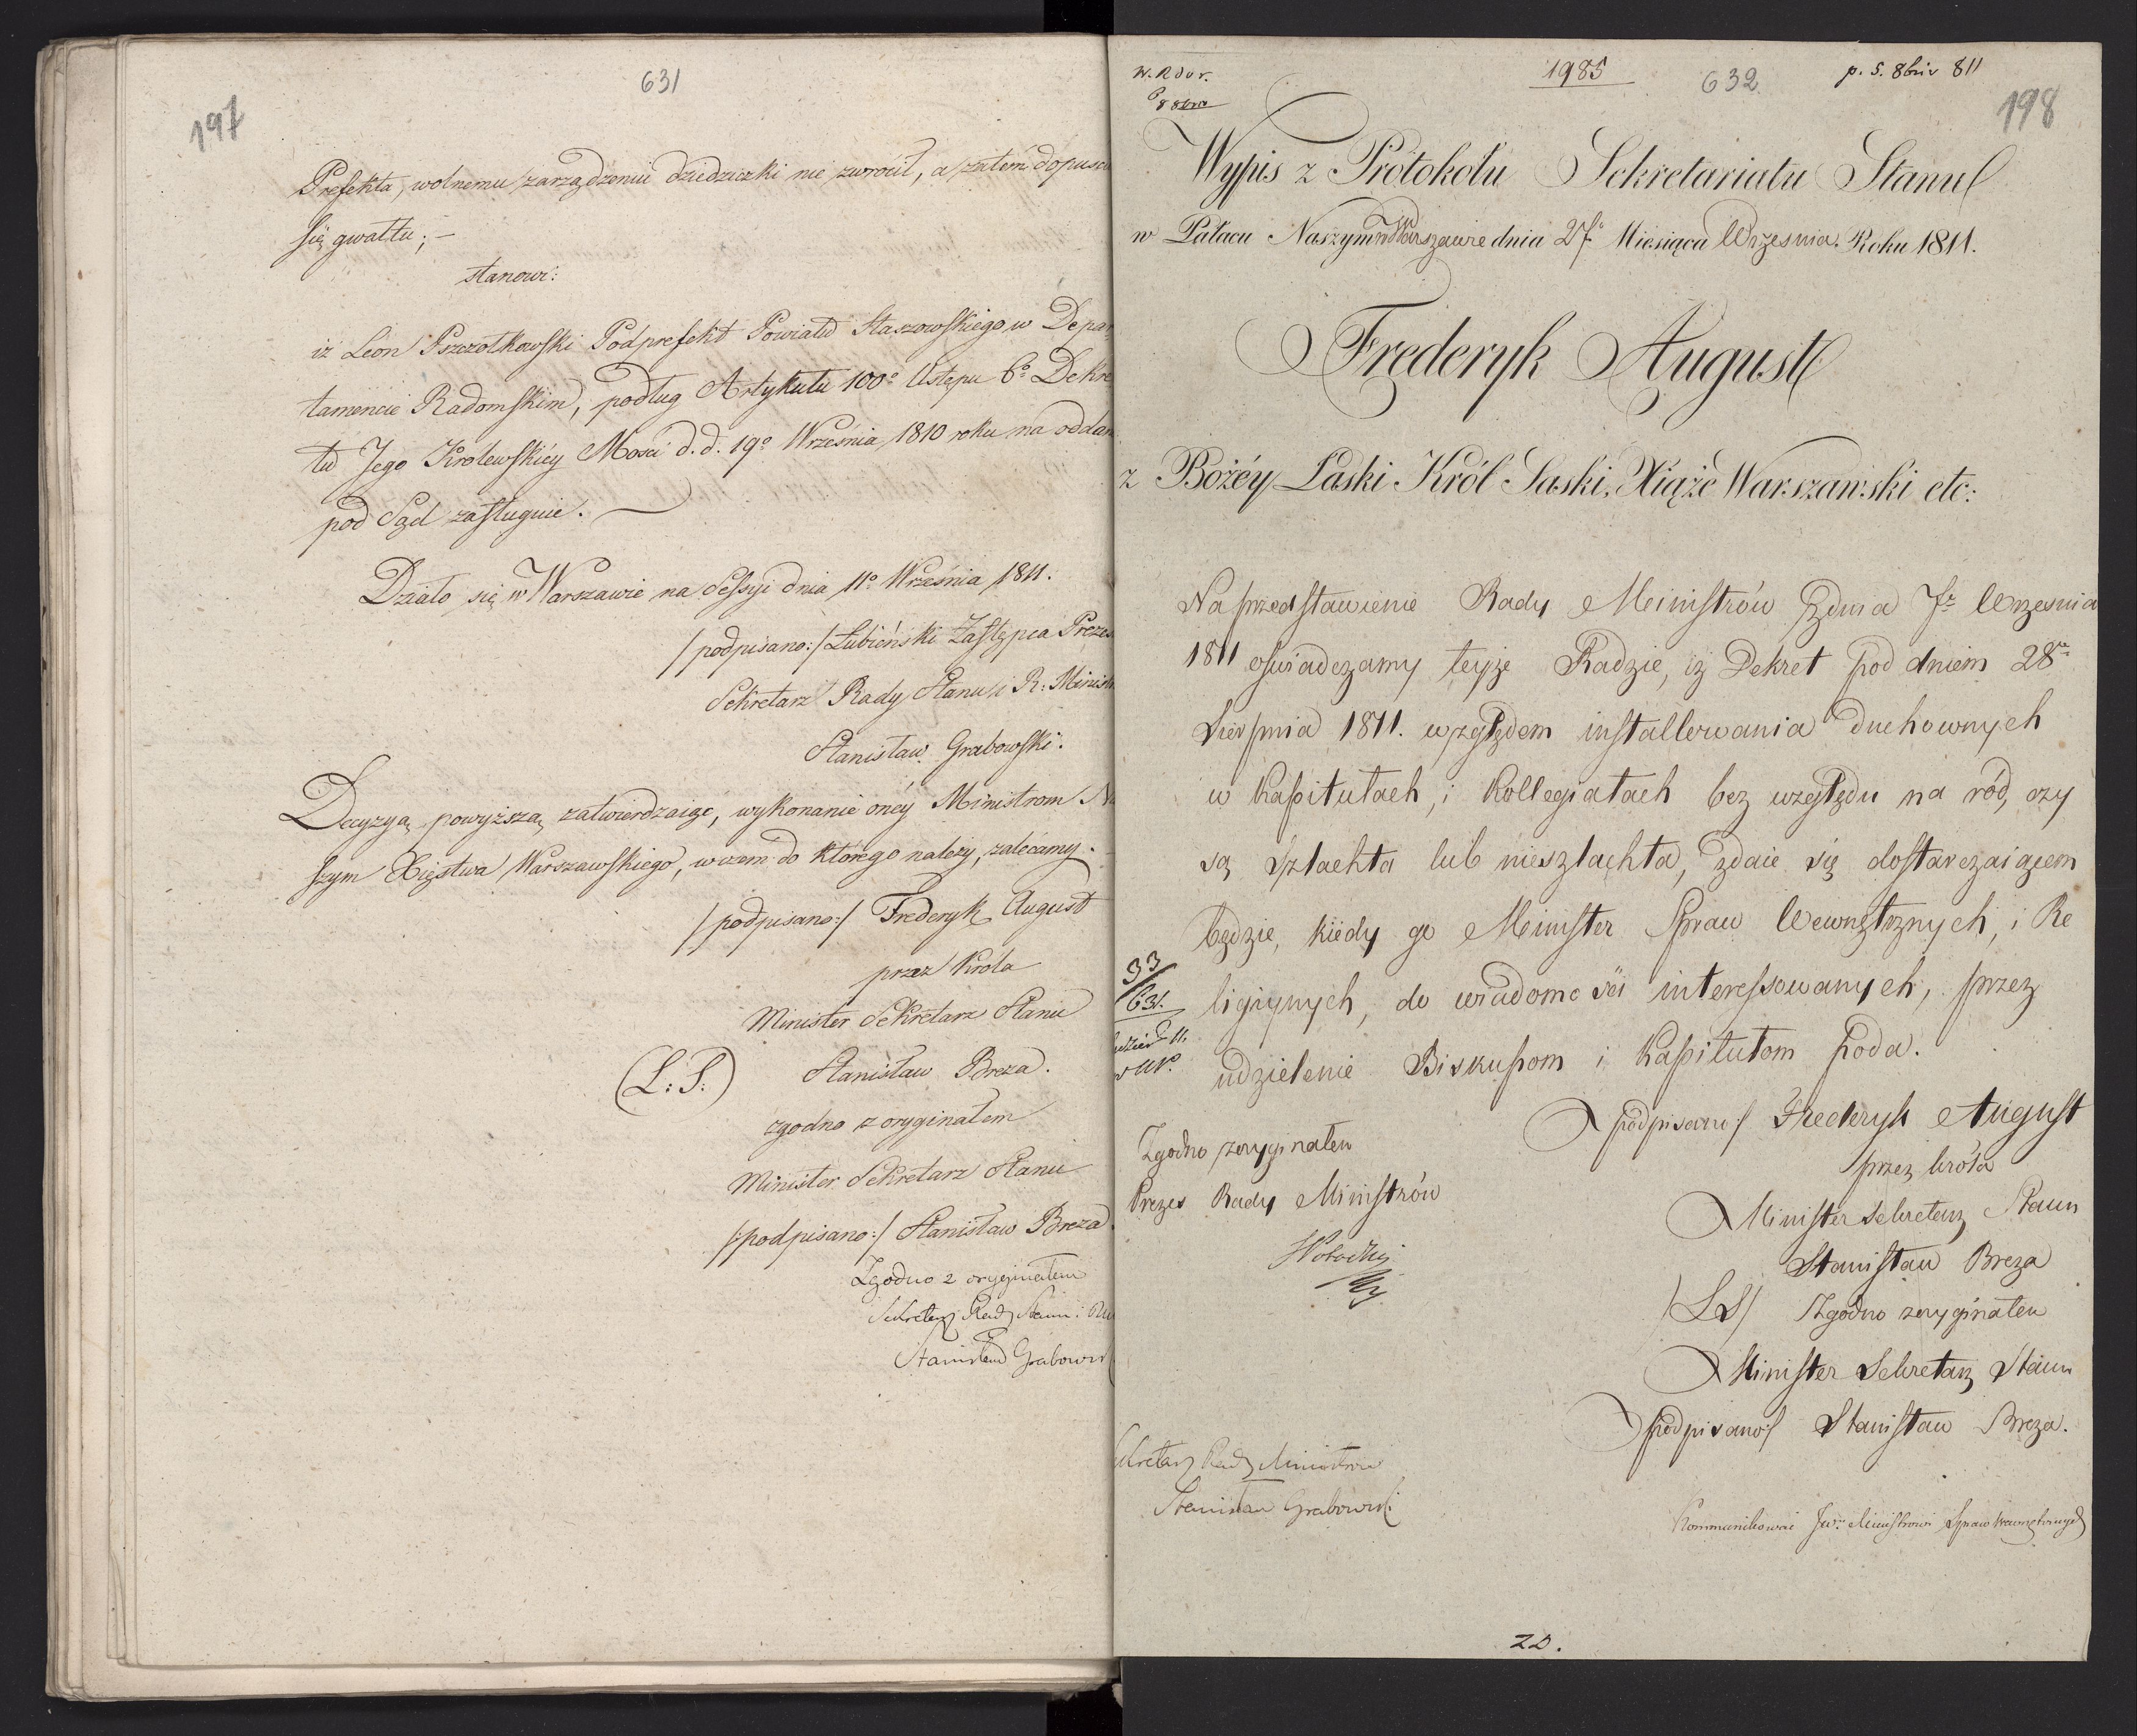 631
197
Prefekta, wolnemu zarządzeniu dziedziczki nie zwrócił, a zatem dopuscił
się gwałtu; —
stanowi:
iż Leon Pszczołkowski Podprefekt Powiatu Staszowskiego w Depar
tamencie Radomskim, podług Artykułu 100º Ustępu 6º Dekre
tu Jego Królewskiéy Mości d. d. 19º Września 1810 roku na oddan
pod Sąd zasługuie. —
Działo się w Warszawie na Sessyi dnia 11º Września 1811.
/podpisano:/ Łubieński Zastępca Preze
Sekretarz Rady Stanu i R: Minist
Stanisław Grabowski.
Decyzyą powyższą zatwierdzaiąc, wykonanie onéy Ministrom Na
szym Xięstwa Warszawskiego, w czem do którego należy, zalécamy.
/podpisano:/ Frederyk August
przez Króla
Minister Sekretarz Stanu
(L: S:) Stanisław Breza.
zgodno z oryginałem
Minister Sekretarz Stanu
/:podpisano:/ Stanisław Breza
Zgodno z oryginałem
Sekretarz Rady Stanu i
Stanisław Grabowsk
1985
632
p. 5. 8bris 811
198
Wypis z Protokołu Sekretariatu Stanu
w Pałacu Naszym w Warszawie dnia 27º Miesiąca Wrzesnia. Roku 1811.
Frederyk August
z Bożéy Łaski Król Saski, Xiąże Warszawski etc:
Na przedstawienie Rady Ministrów z dnia 7º Wrzesnia
1811 oświadczamy teyże Radzie, iż Dekret pod dniem 28º
Sierpnia 1811. względem installowania duchownych
w Kapitułach, i Kollegiatach bez względu na ród, czy
są szlachta lub nieszlachta, zdaie się dostarczaiącem
będzie, kiedy go Minister Spraw Wewnętrznych, i Re
ligiynych, do wiadomości interessowanych, przez
udzielenie Biskupom i Kapitułom poda.
33
631.
podpisano/ Frederyk August
przez króla
Minister Sekretarz Stanu
Stanisław Breza
/LS/ Zgodno z oryginałem
Minister Sekretarz Stanu
podpisano/ Stanisław Breza.
Zgodno z oryginałem
Prezes Rady Ministrów
Sekretarz Rady Ministrów
Stanisław Grabowski
Kommunikować Jw: Ministrowi Spraw Wewnętrznych